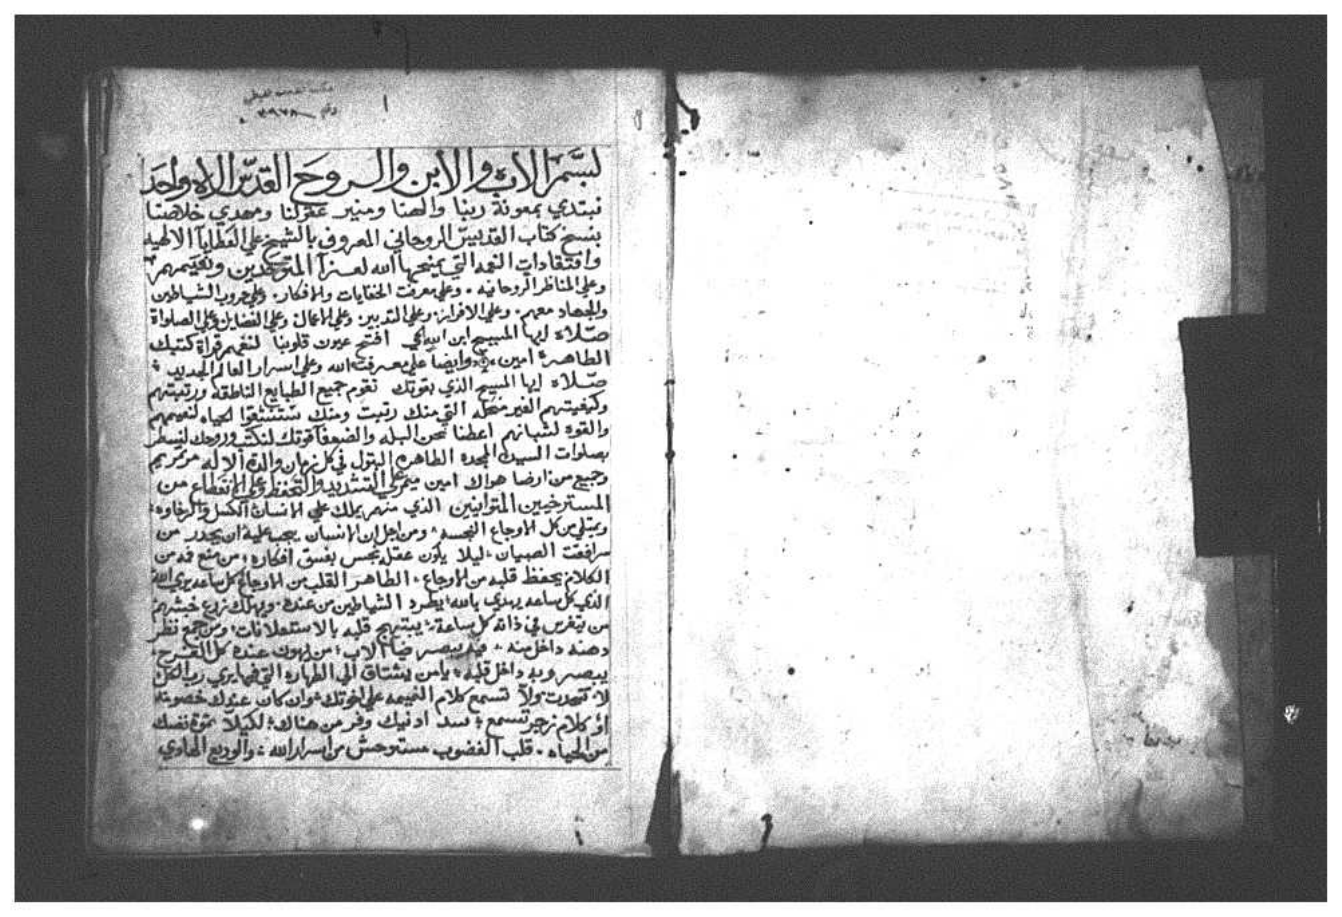 مكتبة المتحف القبطي
رقم
لبسم الاب والابن والروح القدس الاه واحد
نبتدي بمعونة ربنا والهنا ومنير عقولنا ومهدي خلاصنا
بنسخ كتاب القديس الروحاني المعروف بالشيخ علي العطايا الالهيه
وافتقادات النعمه التي يمنحها الله لعزا المتوحدين ونعيمهم
وعلي المناظر الروحانيه . وعلي معرفت الخفايات والافكار . وعلي حروب الشياطين
والجهاد معهم . وعلي الافراز . وعلي التدبير وعلي الاعمال وعلي الفضايل وعلي الصلواة
صلاة ايها المسيح ابن الله الحي افتح عيون قلوبنا لنفهم قراة كتبك
الطاهرة امين . وايضا علي معرفت الله وعلي اسرار العالم الجديد
صلاة ايها المسيح الذي بقوتك تقوم جميع الطبايع الناطقه ورتبتهم
وكيفيتهم الغير منحله التي منك رتبت ومنك الحياه لنعيمهم
والقوه لشبانهم اعطنا نحن البله والضعفا قوتك لنكتب وروحك لنسطر
بصلوات السيده المجده الطاهره البتول في كل زمان والدة الاله مرتمريم
وجميع من ارضا هواك امين ميمر علي التشديد والتحفظ وعلي الانقطاع من
المسترخيين المتوانيين الذي منهم يملك علي الانسان الكسل والرخاوه
ويمتلي من كل الاوجاع النجسه ومن اجل ان الانسان يجب عليه ان يحدر من
مرافقت الصبيان ليلا يكون عقله نجس بفسق افكاره من منع فمه من
الكلام يحفظ قلبه من الاوجاع الطاهر القلب من الاوجاع كل ساعه يري الله
الذي كل ساعه يهدي بالله يطرد الشياطين من عنده ويهلك زرع خبثهم
من يتفرس في ذاته كل ساعة يبتهج قلبه بالاستعلانات ومن جمع نظر
دهنه داخل منه يبصر ضيا الاب من يهون عنده كل الفرح
يبصر ربه داخل قلبه يا من يشتاق الي الطهاره التي فيها يري رب الكل
لا تتحدت ولا تسمع كلام النميمه علي اخوتك وان كان عندك خصومه
او كلام زجر تسمع سد ادنيك وفر من هناك لكيلا تموت نفسك
من الحياه . قلب الغضوب مستوحش من اسرار الله والوديع الهادي